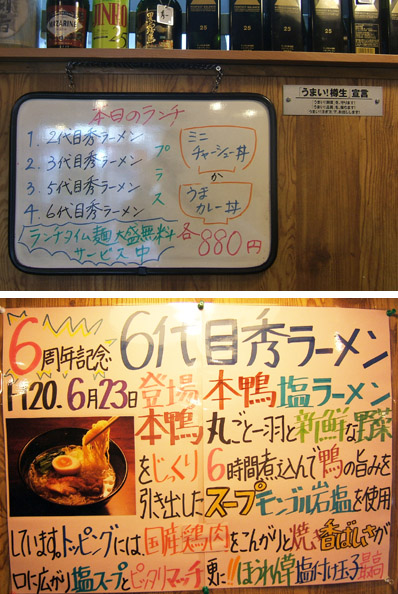 25
25
25
25
本日のランチ
1. 2代目秀ラーメン
2. 3代目秀ラーメン
3. 5代目秀ラーメン
4. 6代目秀ラーメン
プラス
ミニ
チャーシュー丼
か
うま
カレー丼
ランチタイム麺大盛無料
サービス中
各880円
「うまい!樽生」宣言
6周年記念 6代目秀ラーメン
H20.6月23日登場 本鴨塩ラーメン
本鴨丸ごと一羽と新鮮な野菜
をじっくり6時間煮込んで鴨の旨みを
引き出したスープモンゴル岩塩を使用
しています。トッピングには、国産鶏肉をこんがりと焼き香ばしさが
口に広がり塩スープとピッタリマッチ更に!!ほうれん草塩付け玉子最高